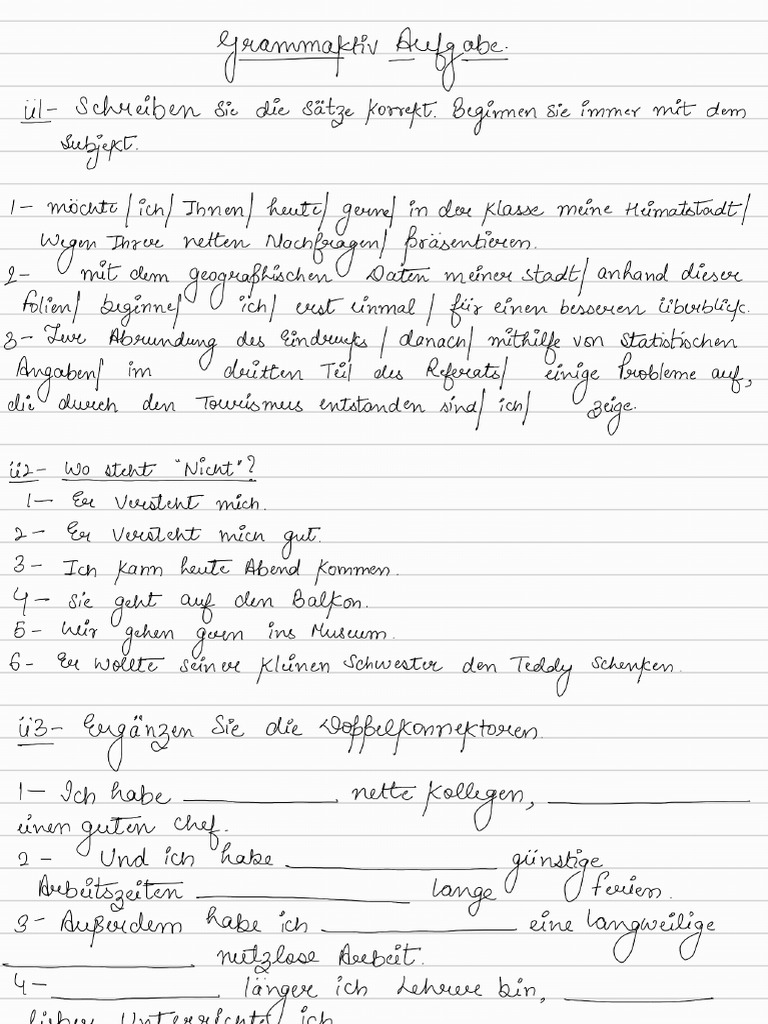 Grammaktiv Aufgabe.
ü1- Schreiben Sie die Sätze korrekt. Beginnen Sie immer mit dem
Subjekt.
1- möchte/ich/Ihnen/heute/gerne/in der Klasse meine Heimatstadt/
Wegen Ihrer netten Nachfragen/präsentieren.
2- mit dem geografhischen Daten meiner stadt/anhand dieser
folien/beginne/ich/erst einmal/für einen besseren überblick.
3- Zur Abrundung des Eindrucks/danach/mithilfe von statistischen
Angaben/im dritten Teil des Referats/einige Probleme auf,
die durch den Tourismus entstanden sind/ich/zeige.
ü2- Wo steht "Nicht"?
1- Er Versteht mich.
2- Er Versteht mich gut.
3- Ich kann heute Abend kommen.
4- Sie geht auf den Balkon.
5- Wir gehen gern ins Museum.
6- Er wollte seiner kleinen Schwester den Teddy schenken.
ü3- Ergänzen Sie die Doppelkonnektoren.
1- Ich habe ________ nette kollegen, ________
einen guten chef.
2- Und ich habe ________ günstige
Arbeitszeiten ________ lange ferien.
3- Außerdem habe ich ________ eine langweilige
________ nutzlose Arbeit.
4- ________ länger ich Lehrer bin, ________
lieber Unterrichte ich